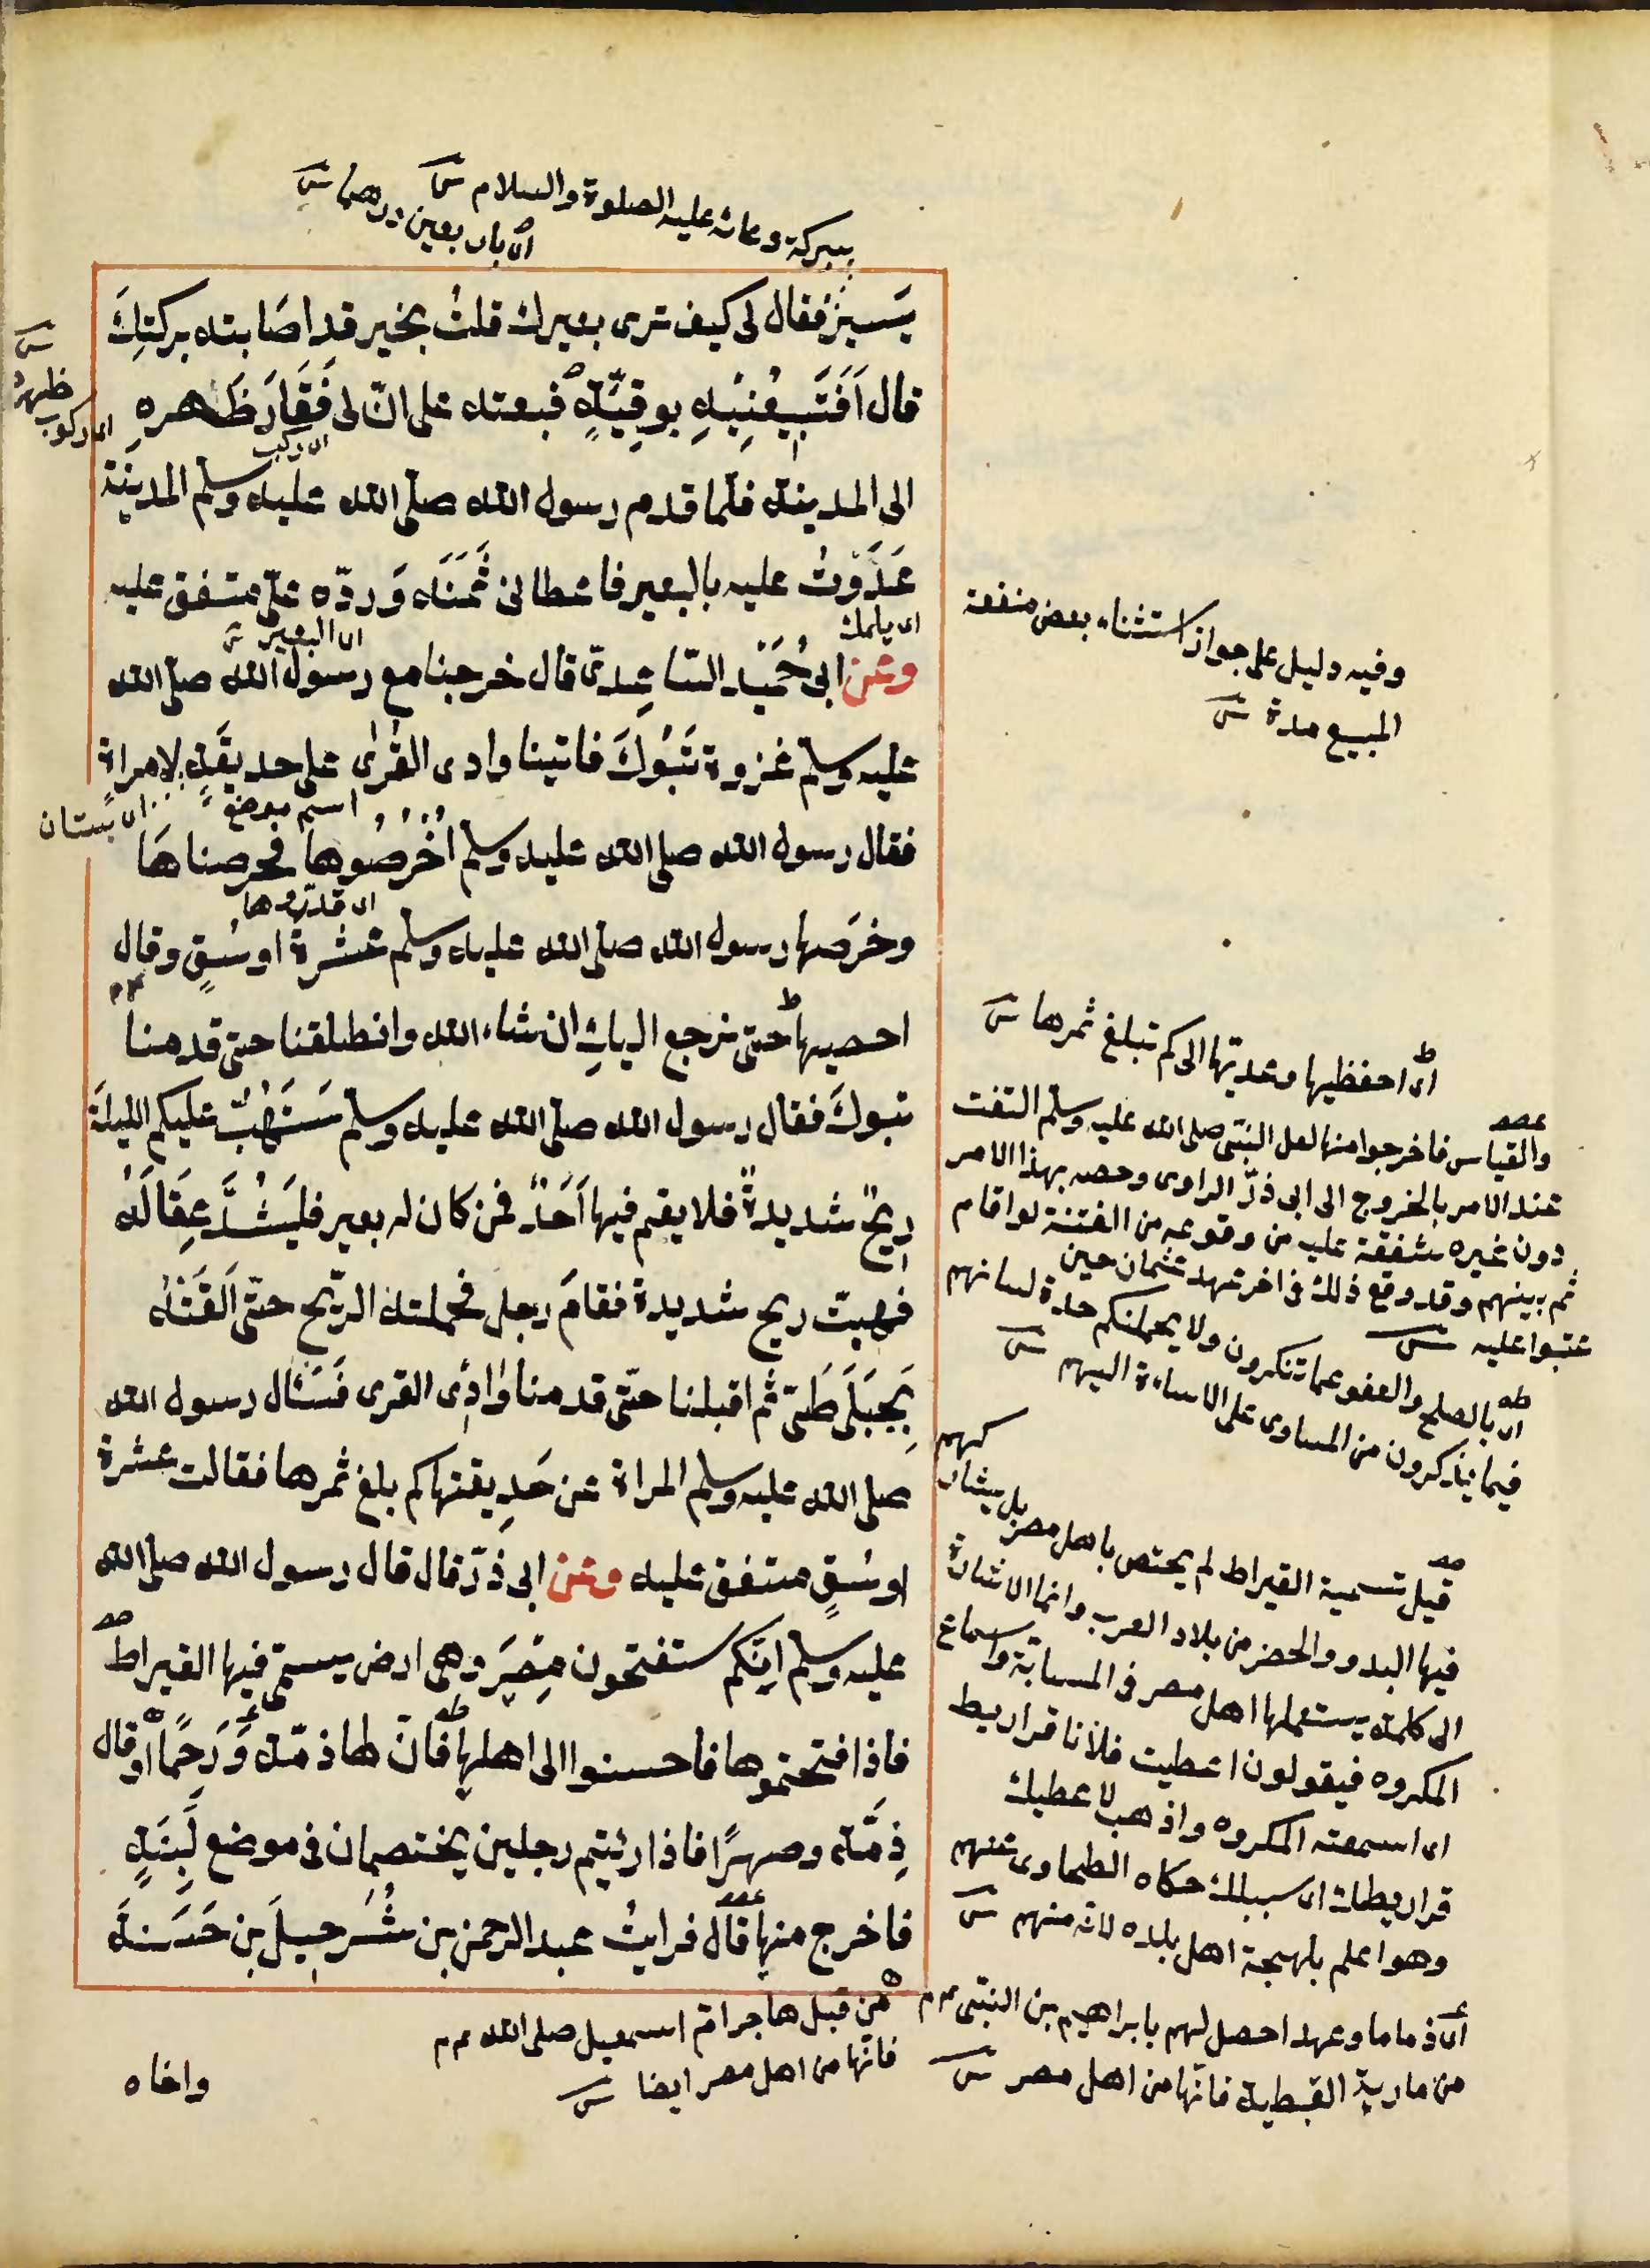 ببركة دعائه عليه الصلوة والسلام
اى باربعين درهما
يَسيرُ فقال لى كيف ترى بعيرك قلتُ بخير قد اصَابته بركتِكَ
قال اَفَتَبيعُنِيْهِ بوقِيَّةٍ فبعته على انّ لى فَقَارَ ظَهره
اى ركوب ظهره
الى المدينة فلمّا قدم رسول الله صلى الله عليه وسلم المدينة
غَدَوْتُ عليه بالبعير فاعطانى ثَمَنَه وَردّه علىّ متفق عليه
اى البعير
وعن ابى حُمَيْد السّاعِدىّ قال خرجنا مع رسول الله صلى الله
عليه وسلم غزوة تَبُوكَ فاتينا وادى القُرٰى على حديقَةٍ لامراة
اسم موضع
اى بستان
فقال رسول الله صلى الله عليه وسلم اُخْرُصُوها فخرصناهَا
اى قدّروها
وخرَصها رسول الله صلى الله عليه وسلم عشرة اوسُقٍ وقال
احصيها حتى نرجع اليكِ ان شاء الله وانطلقنا حتى قدمنا
تبوكَ فقال رسول الله صلى الله عليه وسلم سَتَهُبّ عليكم الليلةَ
ريحٌ شديدةٌ فلا يقم فيها اَحَدٌ فمن كان له بعير فليَشُدَّ عِقَالَهُ
فهبت ريح شديدة فقامَ رجل فحملته الرّيح حتّى اَلقَتْهُ
بِجَبَلَى طَىّ ثم اقبلنا حتّى قدمنا وَادِى القرى فَسَئال رسول الله
صلى الله عليه وسلم المراة عن حَدِيقتها كم بلغ ثمرها فقالت عشرة
اوسُقٍ متفق عليه وعن ابى ذرّ قال قال رسول الله صلى الله
عليه وسلم اِنّكم ستفتحون مِصْرَ وهى ارض يسمّى فيها القيراط
فاذا افتحتموها فاحسنوا الى اهلها فانّ لها ذمّة وَرَحِمًا او قال
ذِمَّة وصهرًا فاذا رئيتم رجلين يختصمان فى موضع لَبِنَةٍ
فاخرج منها قال فرايتُ عبد الرحمن بن شُرَحبيلَ بن حَسَنةَ
واخاه
وفيه دليل على جواز استثناء بعض منفعة
المبيع مدة
اى احفظيها وعديّها الى كم تبلغ ثمرها
والقياس فاخرجوا منها لعل النبى صلى الله عليه وسلم التفت
عند الامر بالخروج الى ابى ذرّ الراوى وخصه بهذا الامر
دون غيره شفقة عليه من وقوعه من الفتنة لو اقام
ثم بينهم وقد وقع ذلك فى اخر عهد عثمان حين
عتبوا عليه
اى بالصلح والعفو عما تنكرون ولا يحملنكم حدة لسانهم
فيما يذكرون من المساوى على الاساءة اليهم
قيل تسمية القيراط لم يختص باهل مصر بل يشاركهم
فيها البدو والحضر من بلاد العرب وانما الاشارة
الى كلمة يستعملها اهل مصر فى المسابّة واسماع
المكروه فيقولون اعطيت فلانا قراريط
اى اسمعته المكروه واذهب لا عطيك
قراريطك اى سبيلك حكاه الطحاوى عنهم
وهو اعلم بلهجة اهل بلده لانه منهم
اى ذماما وعهدا حصل لهم بابراهيم بن النبى
من مارية القبطية فانّها من اهل مصر
من قبل هاجر امّ اسمعيل صلى الله
فانّها من اهل مصر ايضا